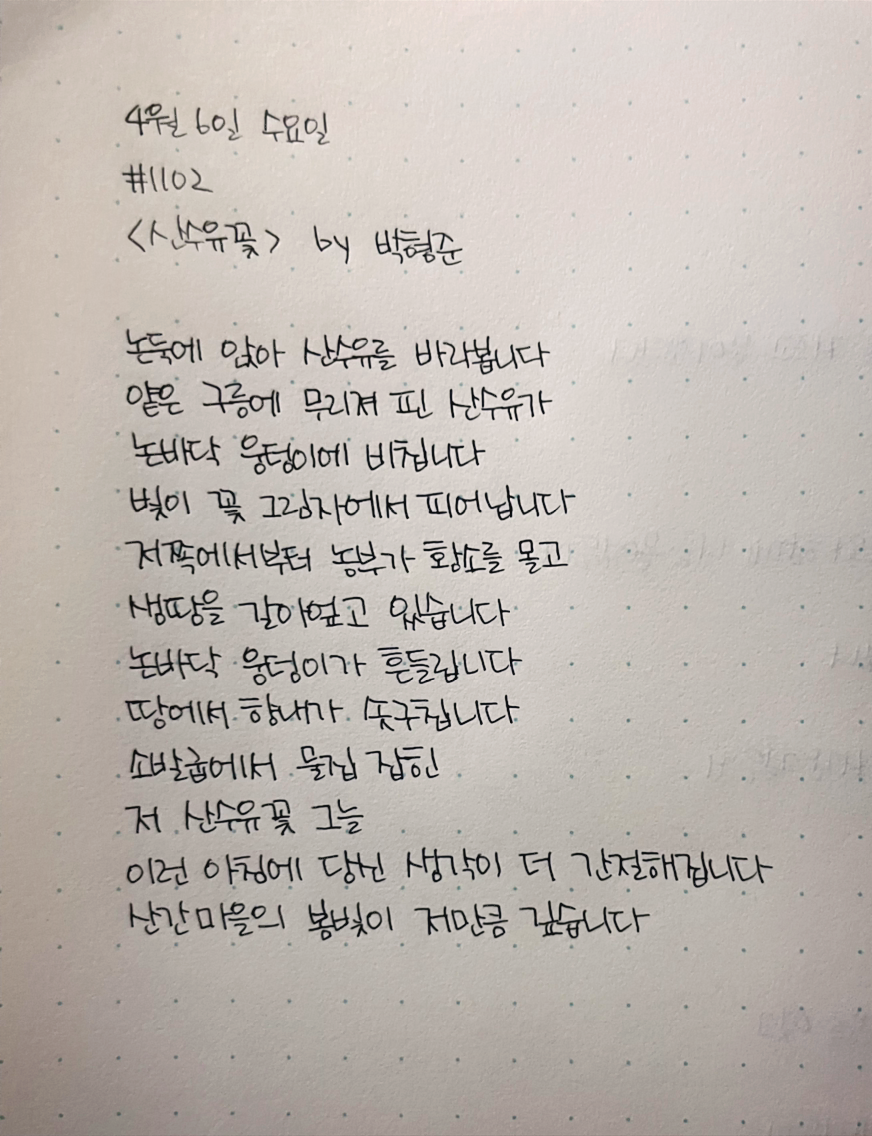 4월 6일 수요일
#1102
<산수유꽃> by 박형준
논둑에 앉아 산수유를 바라봅니다
얕은 구릉에 무리져 핀 산수유가
논바닥 웅덩이에 비칩니다
빛이 꽃 그림자에서 피어납니다
저쪽에서부터 농부가 황소를 몰고
생땅을 갈아엎고 있습니다
논바닥 웅덩이가 흔들립니다
땅에서 향내가 솟구칩니다
소발굽에서 물집 잡힌
저 산수유꽃 그늘
이런 아침에 당신 생각이 더 간절해집니다
산간마을의 봄빛이 저만큼 깊습니다